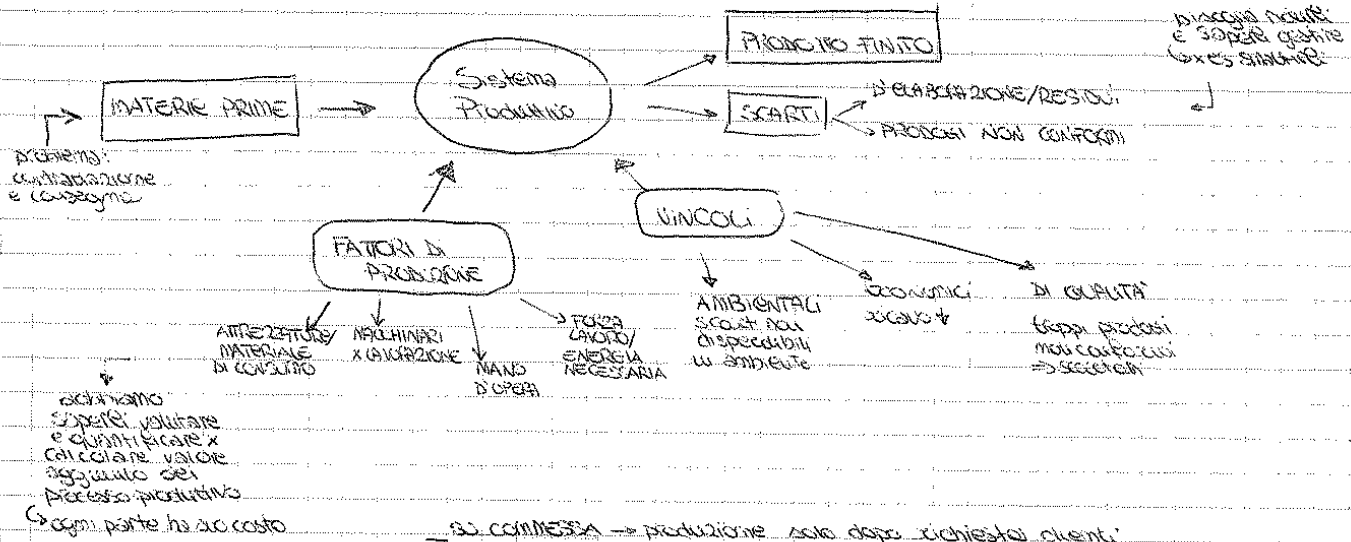 bisogna ridurli
e saperli gestire
x es smaltirli
PRODOTTO FINITO
Sistema
Produttivo
MATERIE PRIME
SCARTI
D'ELABORAZIONE/RESIDUI
PRODOTTI NON CONFORMI
problema:
contrattazione
e consegna
VINCOLI
FATTORI DI
PRODUZIONE
ATTREZZATURE/
MATERIALE
DI CONSUMO
MACCHINARI
x LAVORAZIONE
MANO
D'OPERA
FORZA
LAVORO/
ENERGIA
NECESSARIA
AMBIENTALI
scarti non
disperdibili
in ambiente
ECONOMICI
ricavo ↓
DI QUALITÀ
troppi prodotti
non conformi
dobbiamo
saperli valutare
e quantificare x
calcolare valore
aggiunto del
processo produttivo
↳ ogni parte ha suo costo
- SU COMMESSA → produzione solo dopo richiesta clienti